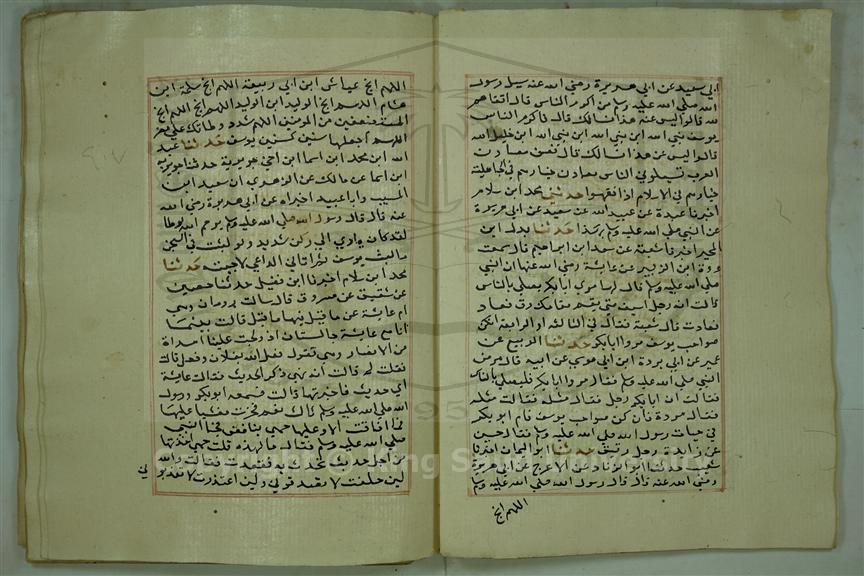 ابي سعيد عن ابي هريرة رضي الله عنه سيل رسول
الله صلي الله عليه وسلم من اكرم الناس قال اتقاهم
لله قالوا ليس عن هذا نسالك قال فاكرم الناس
يوسف نبي الله ابن نبي الله ابن نبي الله ابن خليل الله
قالوا ليس عن هذا نسالك قال فعن معادن
العرب تسيلوني الناس معادن خيارهم في الجاهلية
خيارهم في الاسلام اذا فقهوا حدثنا محمد ابن سلام
اخبرنا عبدة عن عبيد الله عن سعيد عن ابي هريرة
عن النبي صلي الله عليه وسلم بهذا حدثنا بدل ابن
المحبر اخبرنا شعبة عن سعد ابن ابراهيم قال سمعت
عروة ابن الزبير عن عايشة رضي الله عنها ان النبي
صلي الله عليه وسلم قال لها مري ابا بكر يصلي بالناس
قالت انه رجل اسيف متي يقم مقامك رق فعاد
فعادت قال شعبة فقال في الثالثة او الرابعة انكن
صواحب يوسف مروا ابا بكر حدثنا الربيع عن
عمير عن ابي بردة ابن ابي موسي عن ابيه قال مرض
النبي صلي الله عليه وسلم فقال مروا ابا بكر فليصلي بالناس
فقالت ان ابا بكر رجل فقال مثله فقالت مثله
فقال مروه فانكن صواحب يوسف فام ابو بكر
في حيات رسول الله صلي الله عليه وسلم فقال حسين
عن زايدة رجل رقيق حدثنا ابو اليمان اخبرنا
شعيب ابو الزناد عن الاعرج عن ابي هريرة
رضي الله عنه قال قال رسول الله صلي الله عليه وسلم
اللهم انج
اللهم انج عياش ابن ابي ربيعة اللهم انج سلمة ابن
هشام اللهم انج الوليد ابن الوليد اللهم انج
المستضعفين من المومنين اللهم شدد وطاتك علي مضر
اللهم اجعلها سنين كسني يوسف حدثنا عبد
الله ابن محمد ابن اسما ابن اخي جويرية حدثنا جويرية
ابن اسما عن مالك عن الزهري ان سعيد ابن
المسيب وابا عبيد اخبراه عن ابي هريرة رضي الله
عنه قال قال رسول الله صلي الله عليه وسلم يرحم الله لوطا
لقد كان ياوي الي ركن شديد ولو لبثت في السجن
ما لبث يوسف ثم اتاني الداعي لاجبته حدثنا
محمد ابن سلام اخبرنا ابن فضيل حدثنا حصين
عن شقيق عن مسروق قال سالت ام رومان وهي
ام عايشة عن ما قيل فيها ما قيل قالت بينما
انا مع عايشة جالستان اذ ولجت علينا امراة
من الانصار وهي تقول فعل الله بفلان وفعل قالت
فقلت لم قالت انه نمي ذكر الحديث فقالت عايشة
اي حديث فاخبرتها قالت فسمعه ابو بكر ورسول
الله صلي الله عليه وسلم قالت نعم فخرت مغشيا عليها
فما افاقت الا وعليها حمي بنافض فجا النبي
صلي الله عليه وسلم فقال ما لهذه قلت حمي اخذتها
من اجل حديث تحدث به فقعدت فقالت والله
لين حلفت لا تصدقوني ولين اعتذرت لا تعذرو
ني